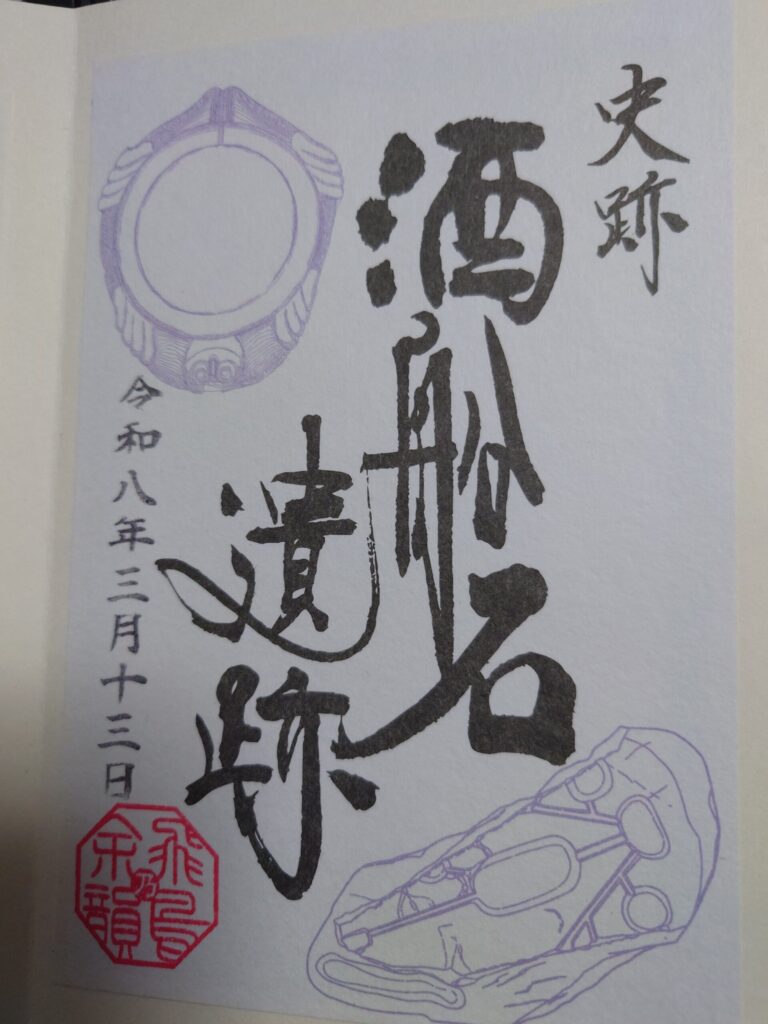 史跡
酒船石
遺跡
令和八年三月十三日
飛鳥乃余韻